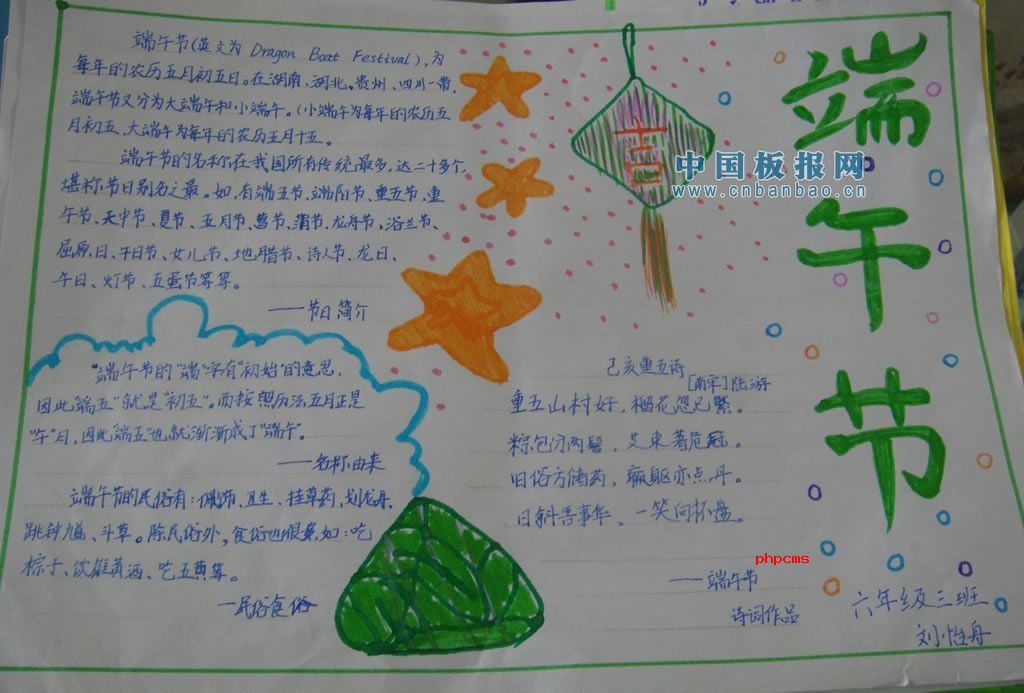 端午节(英文为 Dragon Boat Festival),为
每年的农历五月初五日。在湖南、湖北、贵州、四川一带,
端午节又分为大端午和小端午。(小端午为每年的农历五
月初五、大端午为每年的农历五月十五。
端午节的名称在我国所有传统最多,达二十多个,
堪称节日别名之最。如,有端五节、端阳节、重五节、重
午节、天中节、夏节、五月节、菖节、蒲节、龙舟节,浴兰节、
屈原日、午日节、女儿节、地腊节、诗人节、龙日、
午日、灯节、五蛋节等等。
——节日简介
"端午节的"端"字有"初始"的意思,
因此"端五"就是"初五"。而按照历法五月正是
"午"月,因此端五"也就渐渐成了"端午"。
——名称由来
端午节的民俗有:
、卫生、挂草药,划龙舟、
跳钟馗、斗草。除民俗外,食俗也很多,如:吃
粽子、饮雄黄酒、吃五黄等。
—民俗食俗
己亥重五诗
[南宋]陆游
重五山村好,榴花忽已繁。
粽包分两髻,艾束著危冠。
旧俗方储药,羸躯亦点丹。
日斜吾事毕,一笑向杯盘。
——端午节
诗词作品
端午节
六年级三班
刘怡舟
中国板报网
www.cnbanbao.cn
phpcms